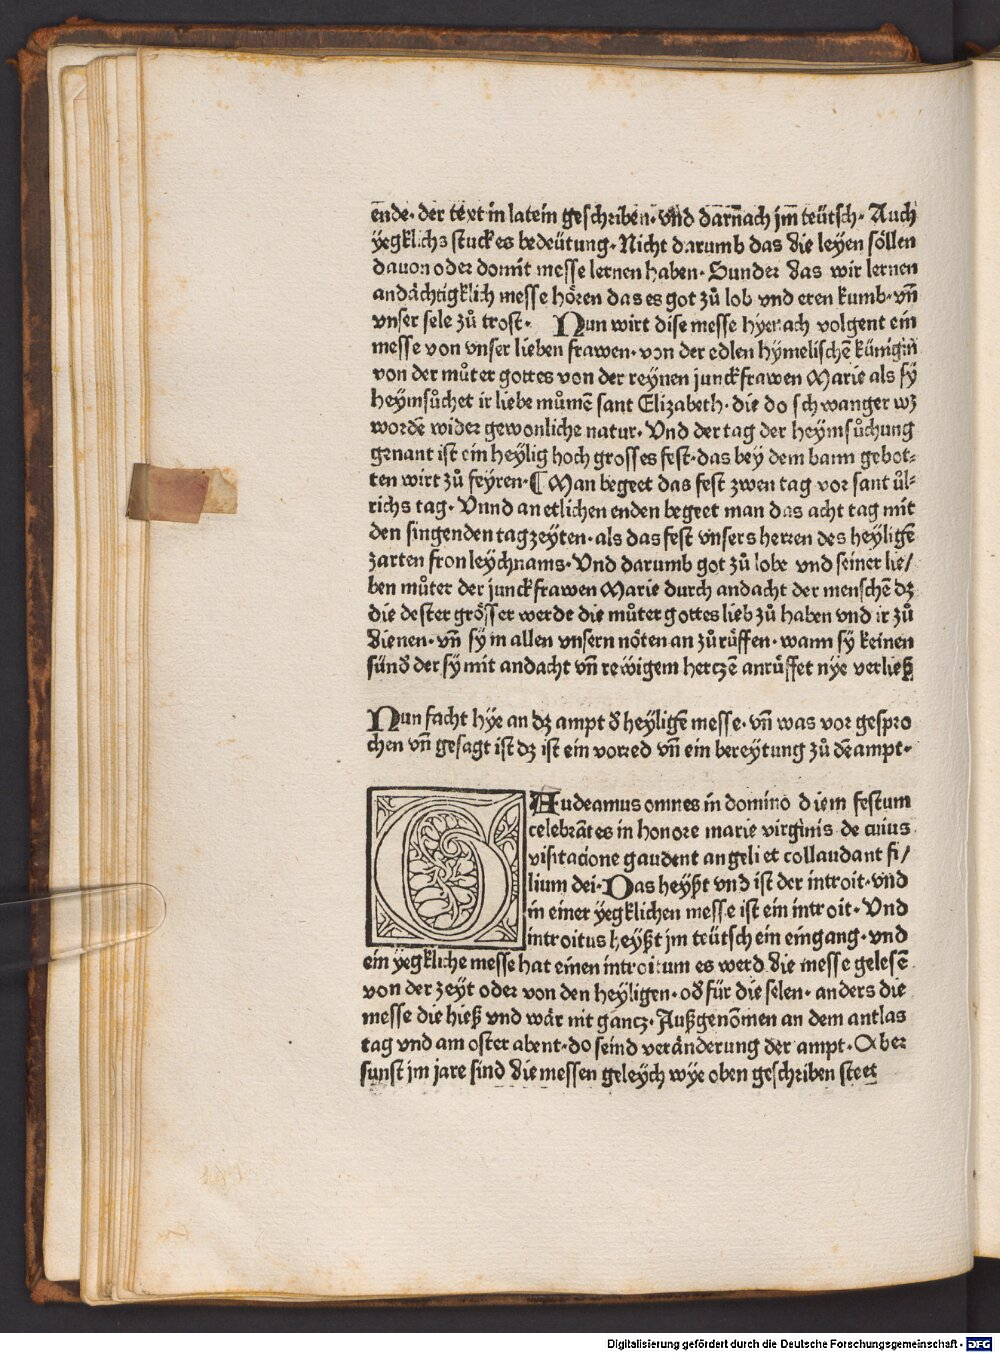 ende· der text in latein geschriben· vnd darnach jm̄ teütsch· Auch
yegklichs stuckes bedeütung· Nicht darumb das die leyen söllen
dauon oder domit messe lernen haben· Sunder das wir lernen
andächtigklich messe hören das es got zů lob vnd eren kumb· vn̄
vnser sele zů trost· Nun wirt dise messe hyernach volgent ein
messe von vnser lieben frawen· von der edlen hymelischē künigin
von der můter gottes von der reynen junckfrawen Marie als sy
heymsůchet ir liebe můmē sant Elizabeth· die do schwanger wz
wordē wider gewonliche natur· Vnd der tag der heymsůchung
genant ist ein heylig hoch grosses fest· das bey dem bann gebot⸗
ten wirt zů feyren· ¶ Man begeet das fest zwen tag vor sant ůl⸗
richs tag· Vnnd an etlichen enden begeet man das acht tag mit
den singenden tagzeyten· als das fest vnsers herren des heyligē
zarten fronleychnams· Vnd darumb got zů lobe vnd seiner lie/
ben můter der junckfrawen Marie durch andacht der menschē dz
die dester grösser werde die můter gottes lieb zů haben vnd ir zů
dienen· vn̄ sy in allen vnsern nöten an zů rüffen· wann sy keinen
sünd der sy mit andacht vn̄ rewigem hertzē anrüffet nye verließ
Nun facht hye an dz ampt d heyligē messe· vn̄ was vor gespro
chen vn̄ gesagt ist dz ist ein vorred vn̄ ein bereytung zů dē ampt·
GAudeamus omnes in domino diem festum
celebrātes in honore marie virginis de cuius
visitacione gaudent angeli et collaudant fi/
lium dei· Das heyßt vnd ist der introit· vnd
in einer yegklichen messe ist ein introit· Vnd
introitus heyßt jm teütsch ein eingang· vnd
ein yegkliche messe hat einen introitum es werd die messe gelesē
von der zeyt oder von den heyligen· od für die selen· anders die
messe die hieß vnd wär nit gancz· Außgenōmen an dem antlas
tag vnd am oster abent· do seind veränderung der ampt· Aber
sunst jm jare sind die messen geleych wye oben geschriben steet
Digitalisierung gefördert durch die Deutsche Forschungsgemeinschaft - DFG